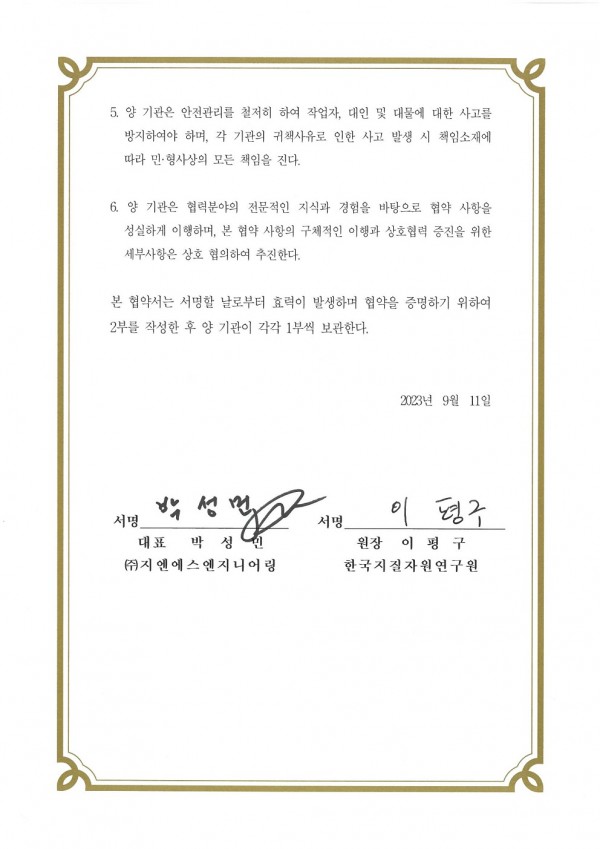 5. 양 기관은 안전관리를 철저히 하여 작업자, 대인 및 대물에 대한 사고를
방지하여야 하며, 각 기관의 귀책사유로 인한 사고 발생 시 책임소재에
따라 민·형사상의 모든 책임을 진다.
6. 양 기관은 협력분야의 전문적인 지식과 경험을 바탕으로 협약 사항을
성실하게 이행하며, 본 협약 사항의 구체적인 이행과 상호협력 증진을 위한
세부사항은 상호 협의하여 추진한다.
본 협약서는 서명할 날로부터 효력이 발생하며 협약을 증명하기 위하여
2부를 작성한 후 양 기관이 각각 1부씩 보관한다.
2023년 9월 11일
서명 박성민 서명 이평구
대표 박 성 민 원장 이 평 구
㈜지엔에스엔지니어링 한국지질자원연구원